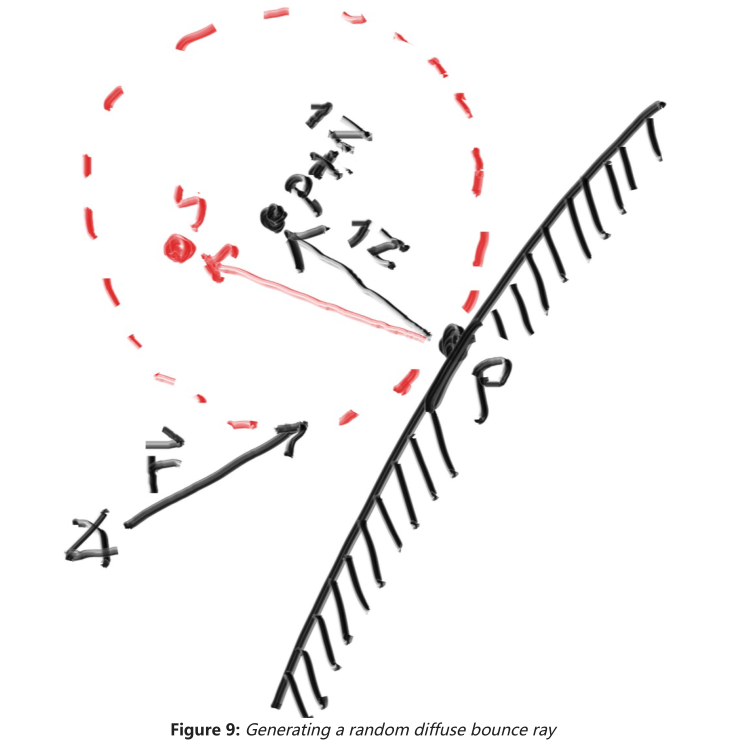 P+N
S
N
P
r
Figure 9: Generating a random diffuse bounce ray